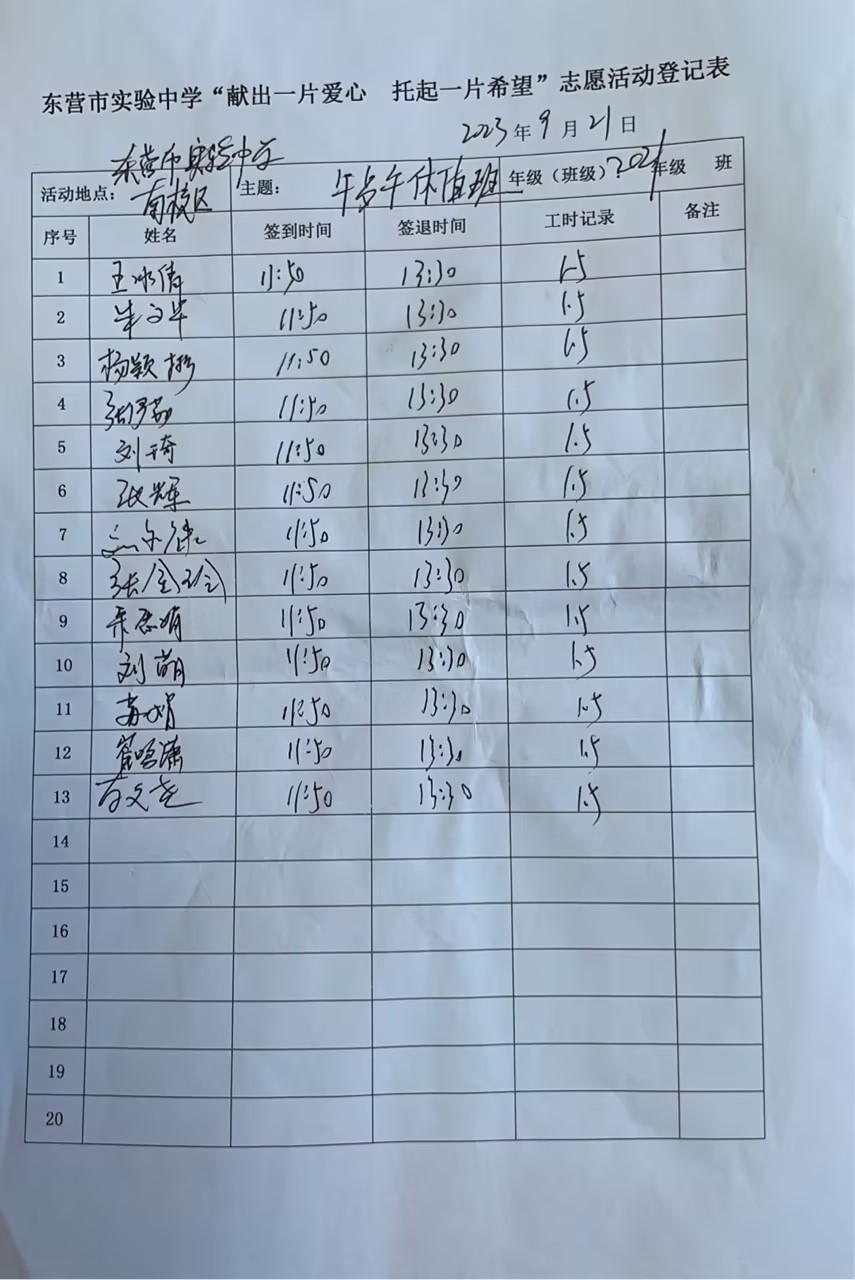 东营市实验中学“献出一片爱心 托起一片希望”志愿活动登记表
2023年9月21日
活动地点：东营市实验中学南校区 主题：午餐午休值班 年级（班级）2021年级 班
序号 姓名 签到时间 签退时间 工时记录 备注
1 王冰倩 11:50 13:30 1.5
2 牛文华 11:50 13:30 1.5
3 杨颖 11:50 13:30 1.5
4 11:50 13:30 1.5
5 刘琦 11:50 13:30 1.5
6 张辉 11:50 13:30 1.5
7 11:50 13:30 1.5
8 张金玲 11:50 13:30 1.5
9 11:50 13:30 1.5
10 刘萌 11:50 13:30 1.5
11 苏娟 11:50 13:30 1.5
12 崔晗潇 11:50 13:30 1.5
13 11:50 13:30 1.5
14
15
16
17
18
19
20